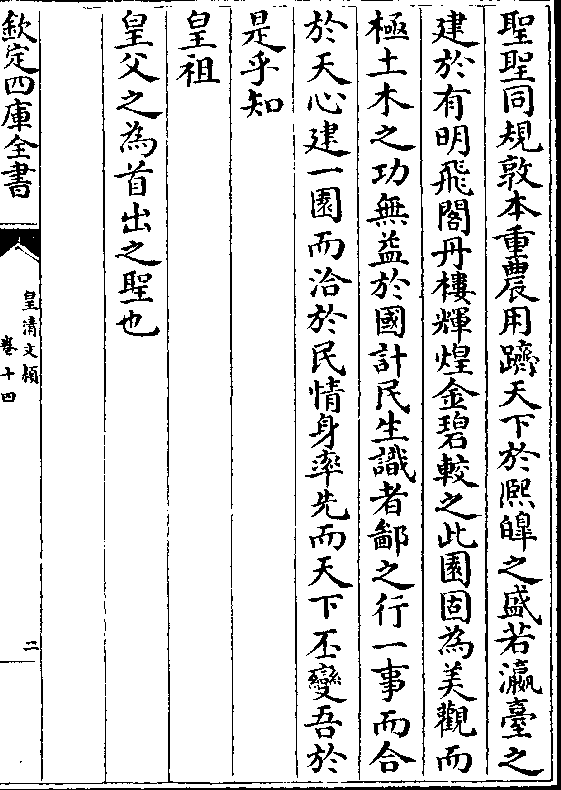 聖聖同規敦本重農用躋天下於熙皥之盛若瀛臺之
建於有明飛閣丹樓輝煌金碧較之此園固為美觀而
極土木之功無益於國計民生識者鄙之行一事而合
於天心建一園而洽於民情身率先而天下丕變吾於
是乎知
皇祖
皇父之為首出之聖也
欽定四庫全書
皇清文頴
卷十四
二